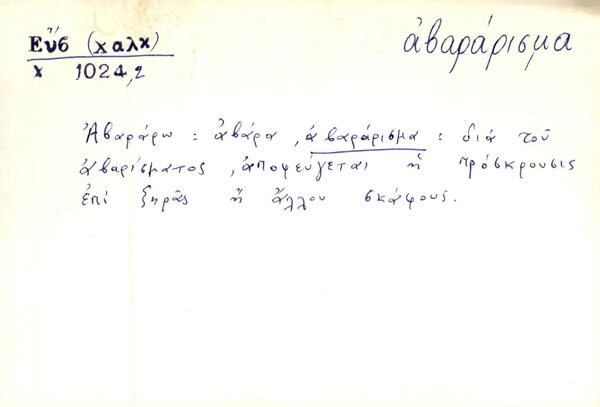 Εὔβ (χαλκ)
χ 1024,2
ἀβαράρισμα
Ἀβαράρω : ἀβάρα, ἀβαράρισμα : διά τοῦ
ἀβαρίσματος, ἀποφεύγεται ἡ πρόσκρουσις
ἐπί ξηρᾶς ἤ ἄλλου σκάφους.